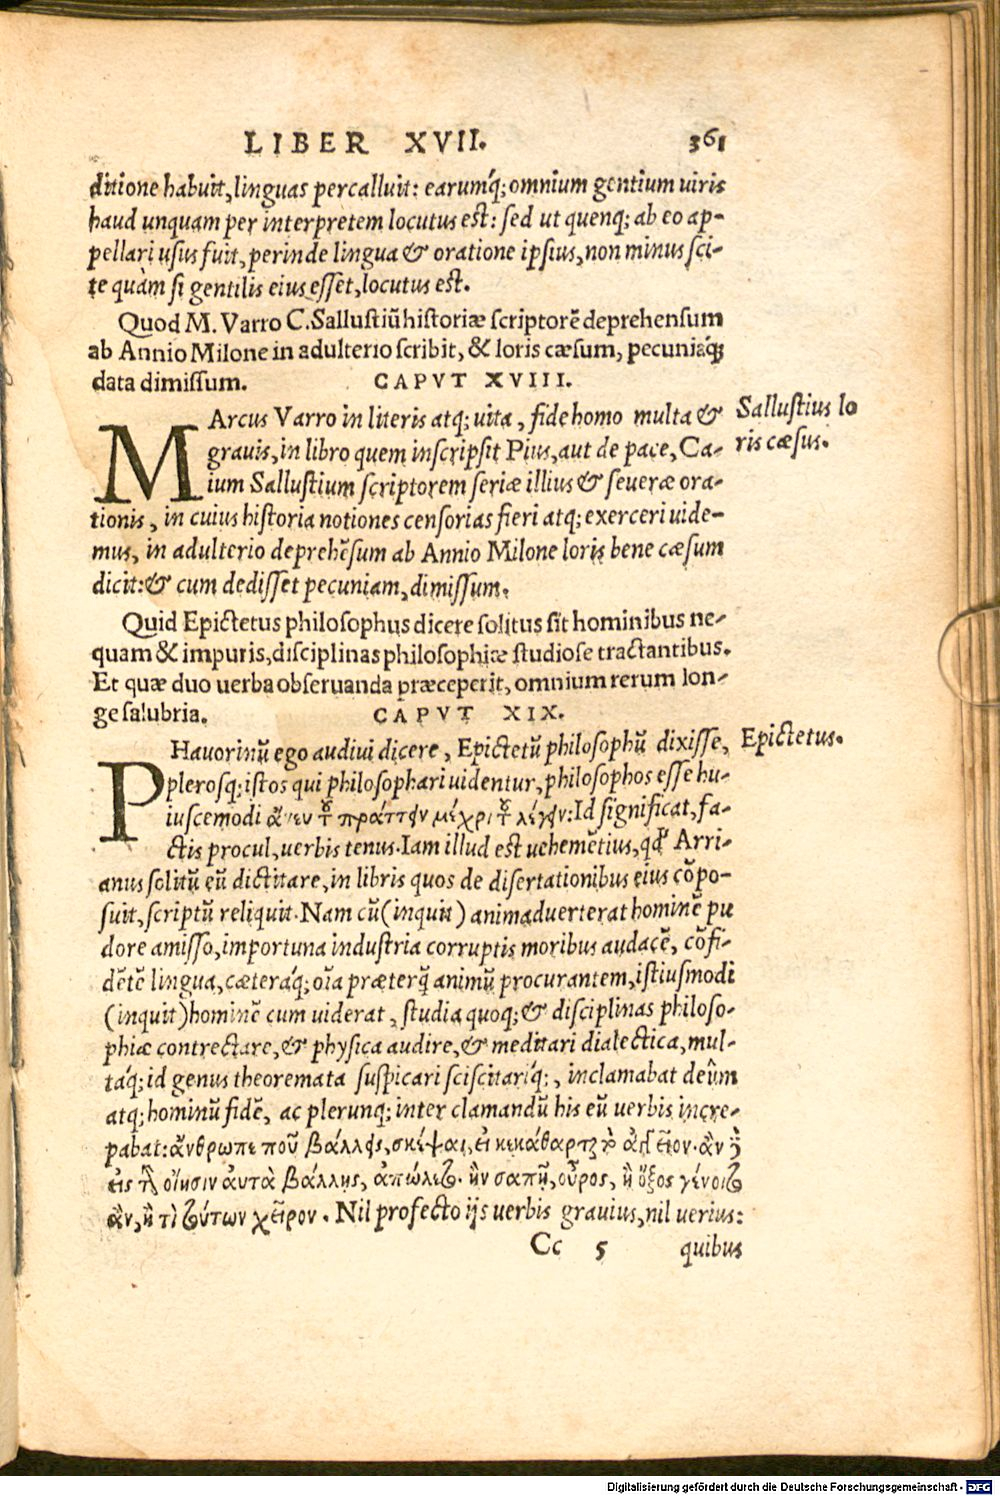 LIBER XVII. 361
ditione habuit, linguas percalluit: earumq́; omnium gentium uiris
haud unquam per interpretem locutus est: sed ut quenq; ab eo ap-
pellari usus fuit, perinde lingua & oratione ipsius, non minus sci-
te quàm si gentilis eius esset, locutus est.
Quod M. Varro C. Sallustiũ historiæ scriptorẽ deprehensum
ab Annio Milone in adulterio scribit, & loris cæsum, pecuniaq́;
data dimissum. CAPVT XVIII.
MArcus Varro in literis atq; uita, fide homo multa & Sallustius lo
grauis, in libro quem inscripsit Pius, aut de pace, Ca- ris cæsus.
ium Sallustium scriptorem seriæ illius & seueræ ora-
tionis, in cuius historia notiones censorias fieri atq; exerceri uide-
mus, in adulterio deprehẽsum ab Annio Milone loris bene cæsum
dicit: & cum dedisset pecuniam, dimissum.
Quid Epictetus philosophus dicere solitus sit hominibus ne-
quam & impuris, disciplinas philosophiæ studiose tractantibus.
Et quæ duo uerba obseruanda præceperit, omnium rerum lon-
ge salubria. CAPVT XIX.
PHauorinũ ego audiui dicere, Epictetũ philosophũ dixisse, Epictetus.
plerosq; istos qui philosophari uidentur, philosophos esse hu-
iuscemodi ἄνευ τοῦ πράττειν μέχρι τοῦ λέγειν: Id significat, fa-
ctis procul, uerbis tenus. Iam illud est uehemẽtius, qđ Arri-
anus solitũ eũ dictitare, in libris quos de disertationibus eius cõpo-
suit, scriptũ reliquit. Nam cũ (inquit) animaduerterat hominẽ pu
dore amisso, importuna industria corruptis moribus audacẽ, cõfi-
dẽtẽ lingua, cæteraq́; oĩa præterq̃ animũ procurantem, istiusmodi
(inquit) hominẽ cum uiderat, studia quoq; & disciplinas philoso-
phiæ contrectare, & physica audire, & meditari dialectica, mul-
taq́; id genus theoremata suspicari sciscitariq́;, inclamabat deûm
atq; hominũ fidẽ, ac plerunq; inter clamandũ his eũ uerbis incre-
pabat: ἄνθρωπε ποῦ βάλλεις, σκέψαι, εἰ κεκάθαρται τὸ ἀγγεῖον. ἂν γὰρ
εἰς τὴν οἴησιν ἀυτὰ βάλλης, ἀπώλετο. ἢν σαπῇ, οὖρος, ἢ ὄξος γένοιτο
ἂν, ἢ τὶ τούτων χεῖρον. Nil profecto ijs uerbis grauius, nil uerius:
Cc 5 quibus
Digitalisierung gefördert durch die Deutsche Forschungsgemeinschaft - DFG